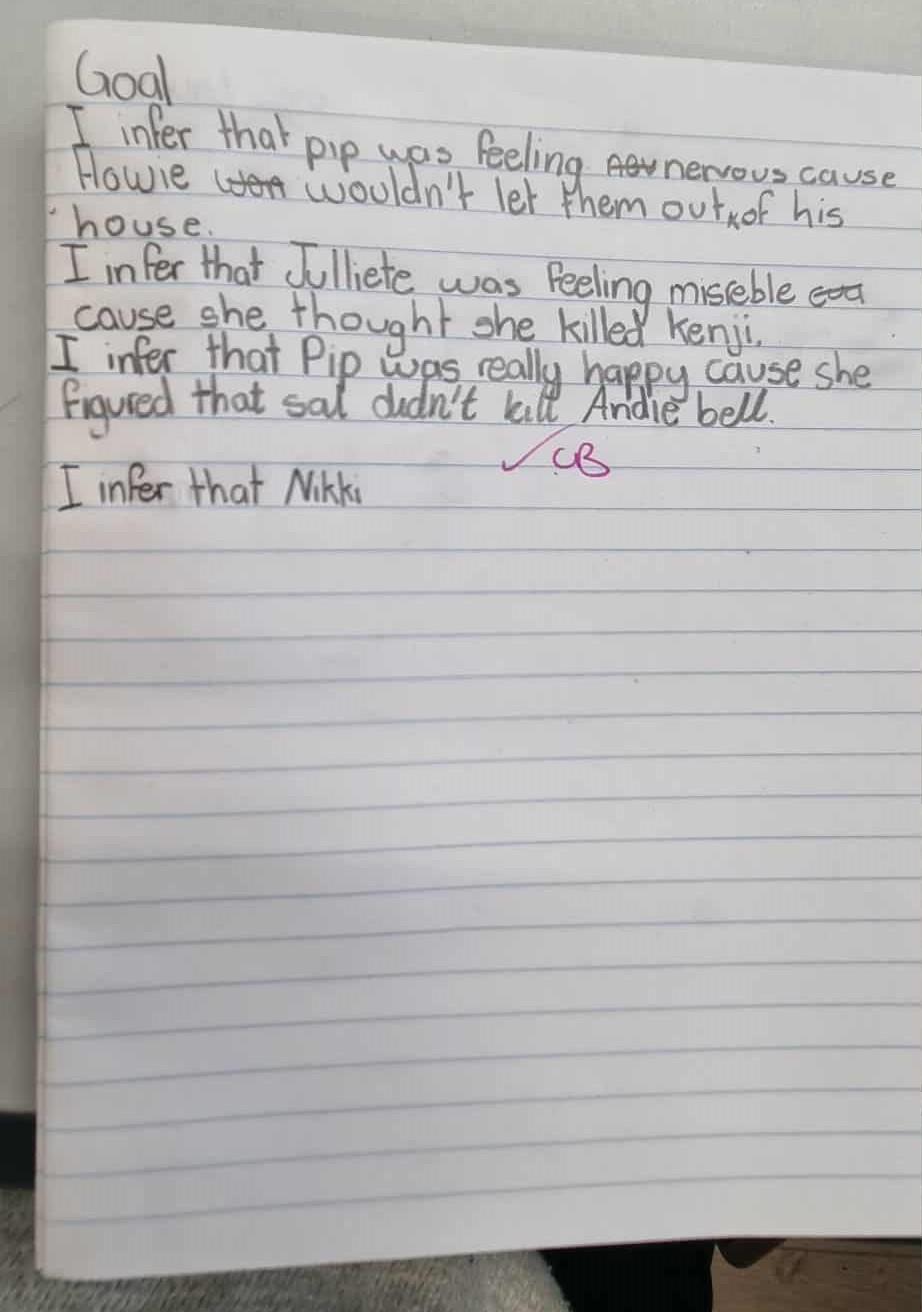 Goal
I infer that pip was feeling nev nervous cause
Howie won wouldn't let them out of his
house.
I infer that Julliete was feeling misreble cua
cause she thought she killed kenji.
I infer that Pip was really happy cause she
figured that sal didn't kill Andie bell.
CB
I infer that Nikki